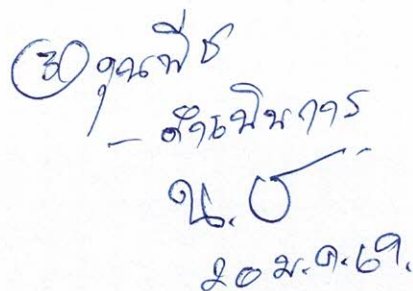 ③ คุณพีช
- ดำเนินการ
น.ช
20 ม.ค.69.